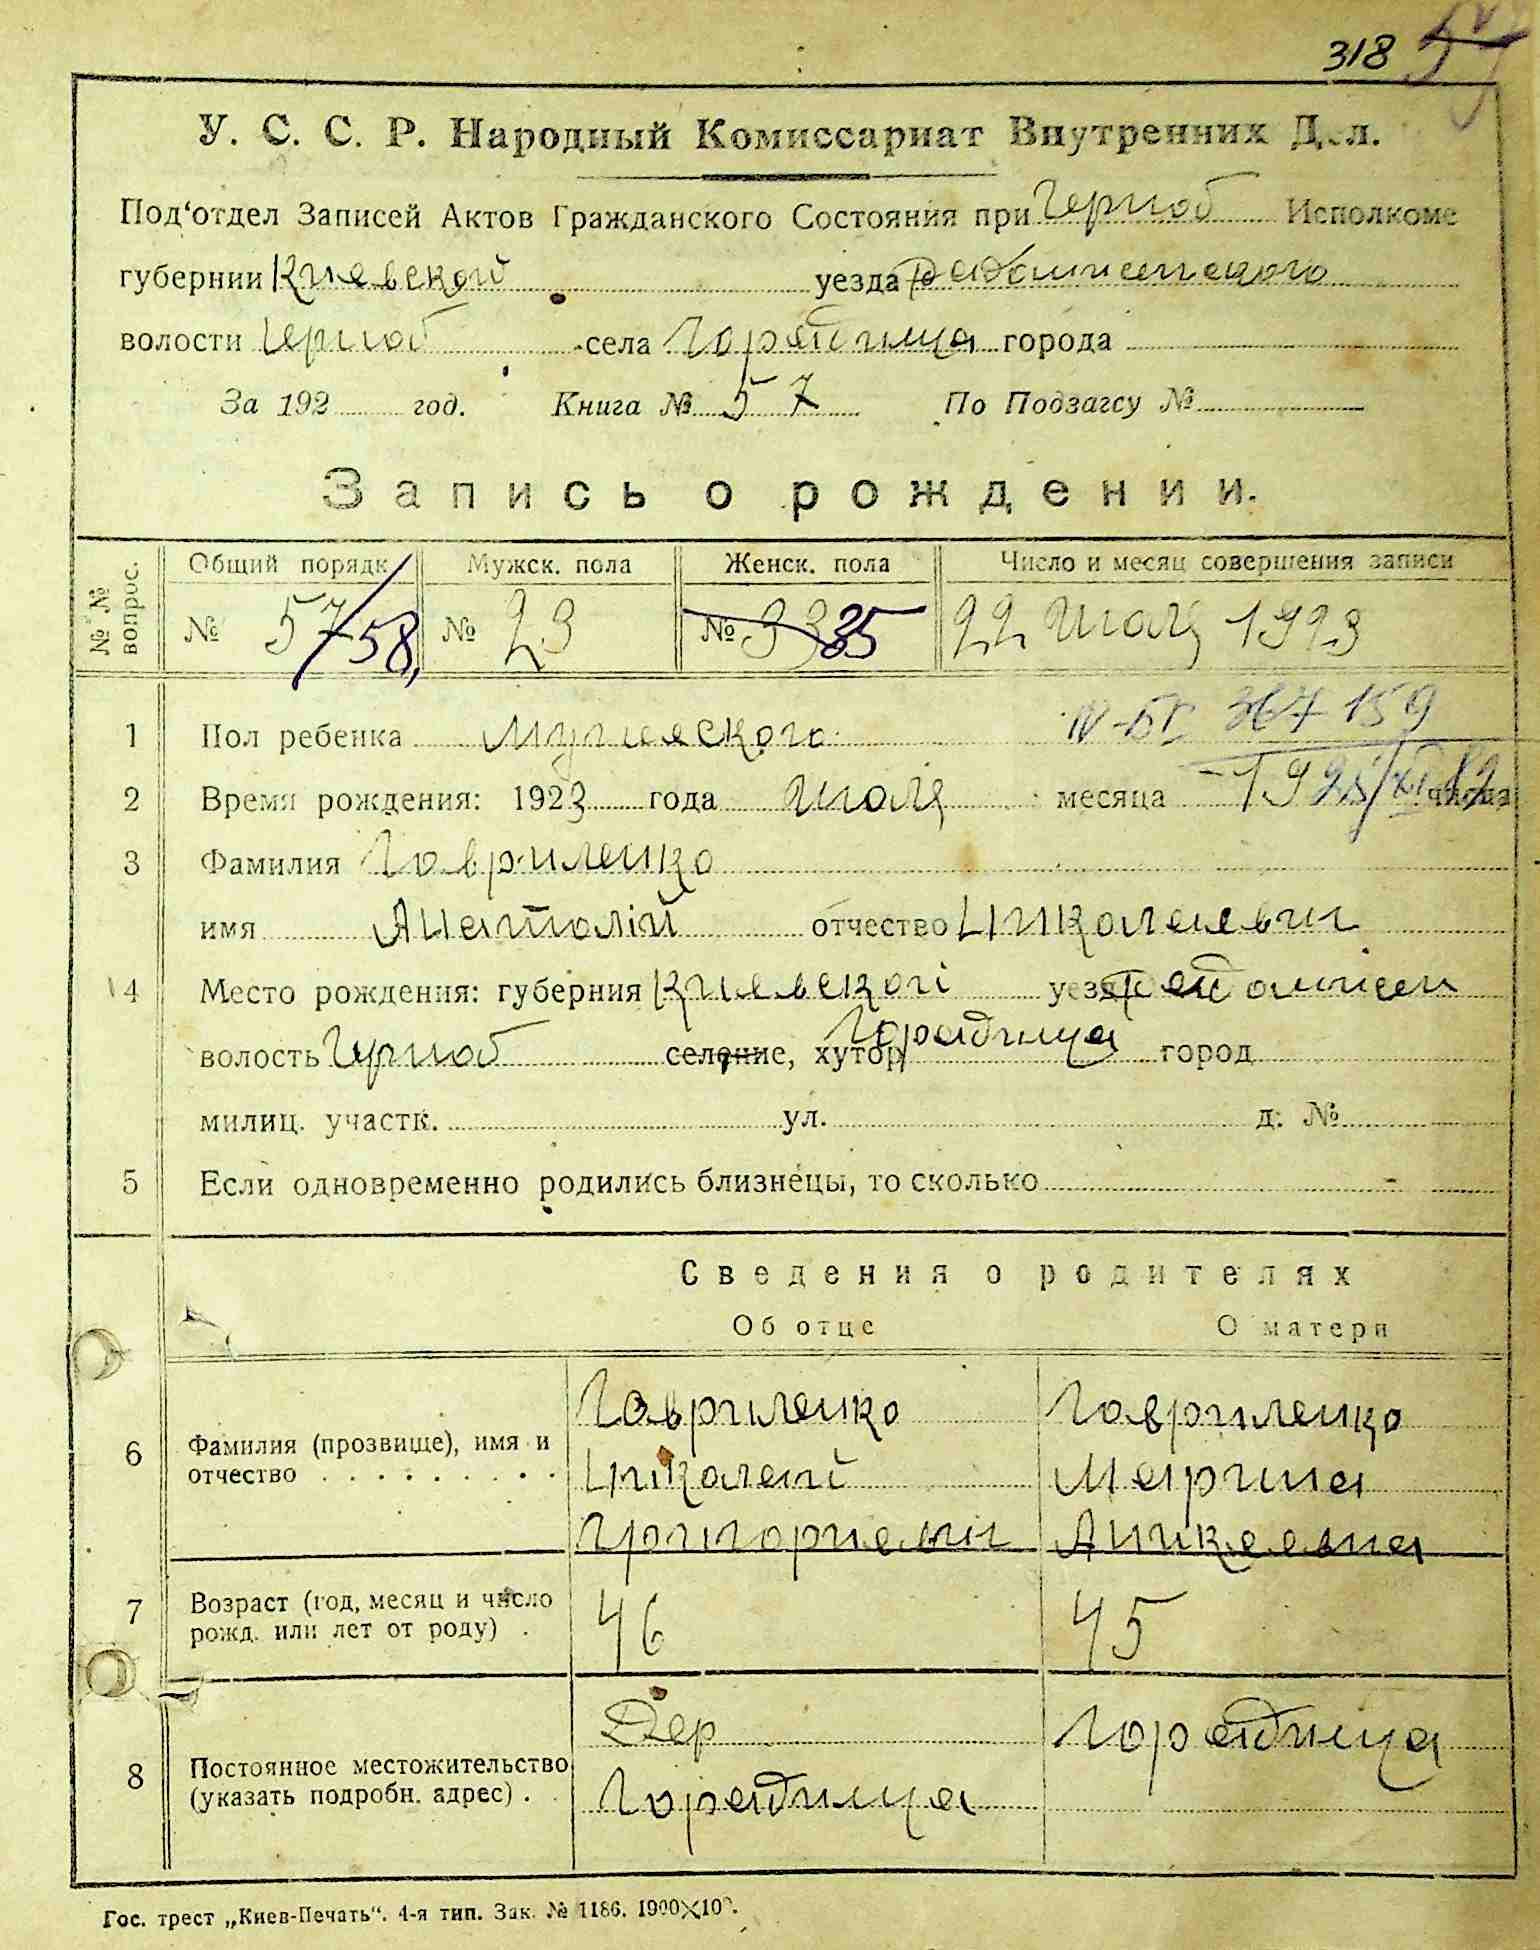 318
У. С. С. Р. Народный Комиссариат Внутренних Дел.
Под‘отдел Записей Актов Гражданского Состояния при Черноб Исполкоме
губернии Киевской уезда Радомисельского
волости Черноб села Горадища города
За 192 год. Книга № 57 По Подзагсу №
Запись о рождении.
№ № вопрос.
Общий порядк Мужск. пола Женск. пола Число и месяц совершения записи
№ 57/58, № 23 № 33 35 22 Июля 1923
IV-БГ 367159
1 Пол ребенка Мужеского
2 Время рождения: 1923 года Июля месяца числа
3 Фамилия Гавриленко
имя Анатолій отчество Николаевич
4 Место рождения: губерния Киевской уезд Радомисел
волость Черноб селение, хутор Горадища город
милиц. участк. ул. д. №
5 Если одновременно родились близнецы, то сколько -
Сведения о родителях
Об отце О матери
6 Фамилия (прозвище), имя и отчество
Гавриленко Гавриленко
Николай Марина
Григориевич Аникеевна
7 Возраст (год, месяц и число рожд. или лет от роду) . 46 45
8 Постоянное местожительство (указать подробн. адрес) .
Дер Горадища
Горадища
Гос. трест „Киев-Печать“. 4-я тип. Зак. № 1186. 1900×10